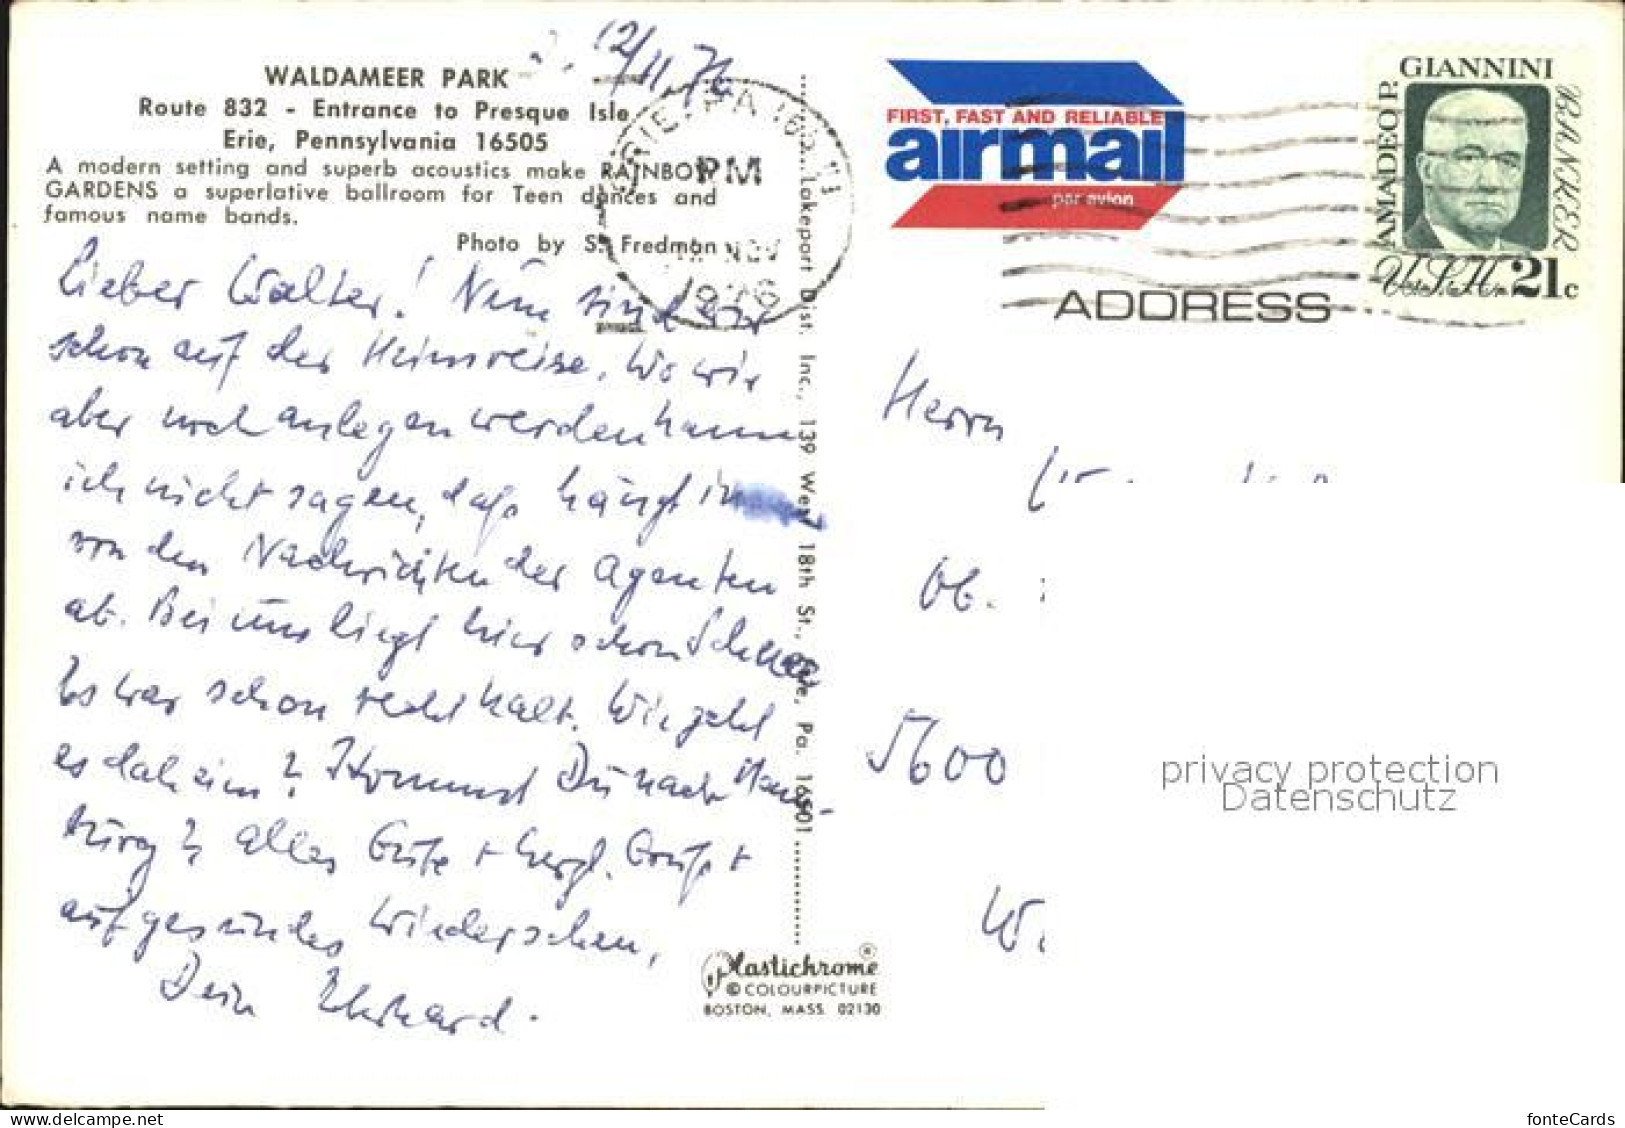 d. 12/11.76
WALDAMEER PARK
Route 832 - Entrance to Presque Isle
Erie, Pennsylvania 16505
A modern setting and superb acoustics make RAINBOW
GARDENS a superlative ballroom for Teen dances and
famous name bands.
Photo by S. Fredman
ERIE, PA 165
PM
NOV
1976
Lieber Walter! Nun sind wir
schon auf der Heimreise. Wo wir
aber noch anlegen werden kann
ich nicht sagen, das hängt
von den Nachrichten der Agenten
ab. Bei uns liegt hier schon Schnee
Es war schon recht kalt. Wie geht
es daheim? Kommst Du nach Ham-
burg? Alles Gute + herzl. Grüße +
auf gesundes Wiedersehen,
Dein Ekkehard.
Lakeport Dist. Inc., 139 West 18th St., Erie, Pa. 16501
Plastichrome®
© COLOURPICTURE
BOSTON, MASS. 02130
FIRST, FAST AND RELIABLE
airmail
par avion
AMADEO P. GIANNINI BANKER
U.S.A. 21c
ADDRESS
Herrn
Ob.
5600
W.
privacy protection
Datenschutz
fonteCards